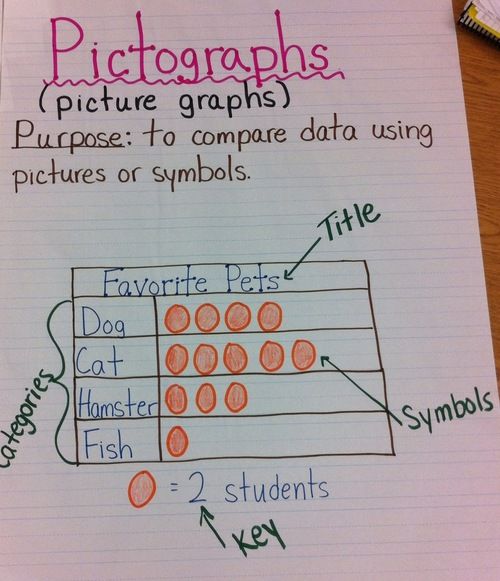 Pictographs
(picture graphs)
Purpose: to compare data using
pictures or symbols.
Title
Favorite Pets
Categories
Dog
Cat
Hamster
Fish
Symbols
= 2 students
Key